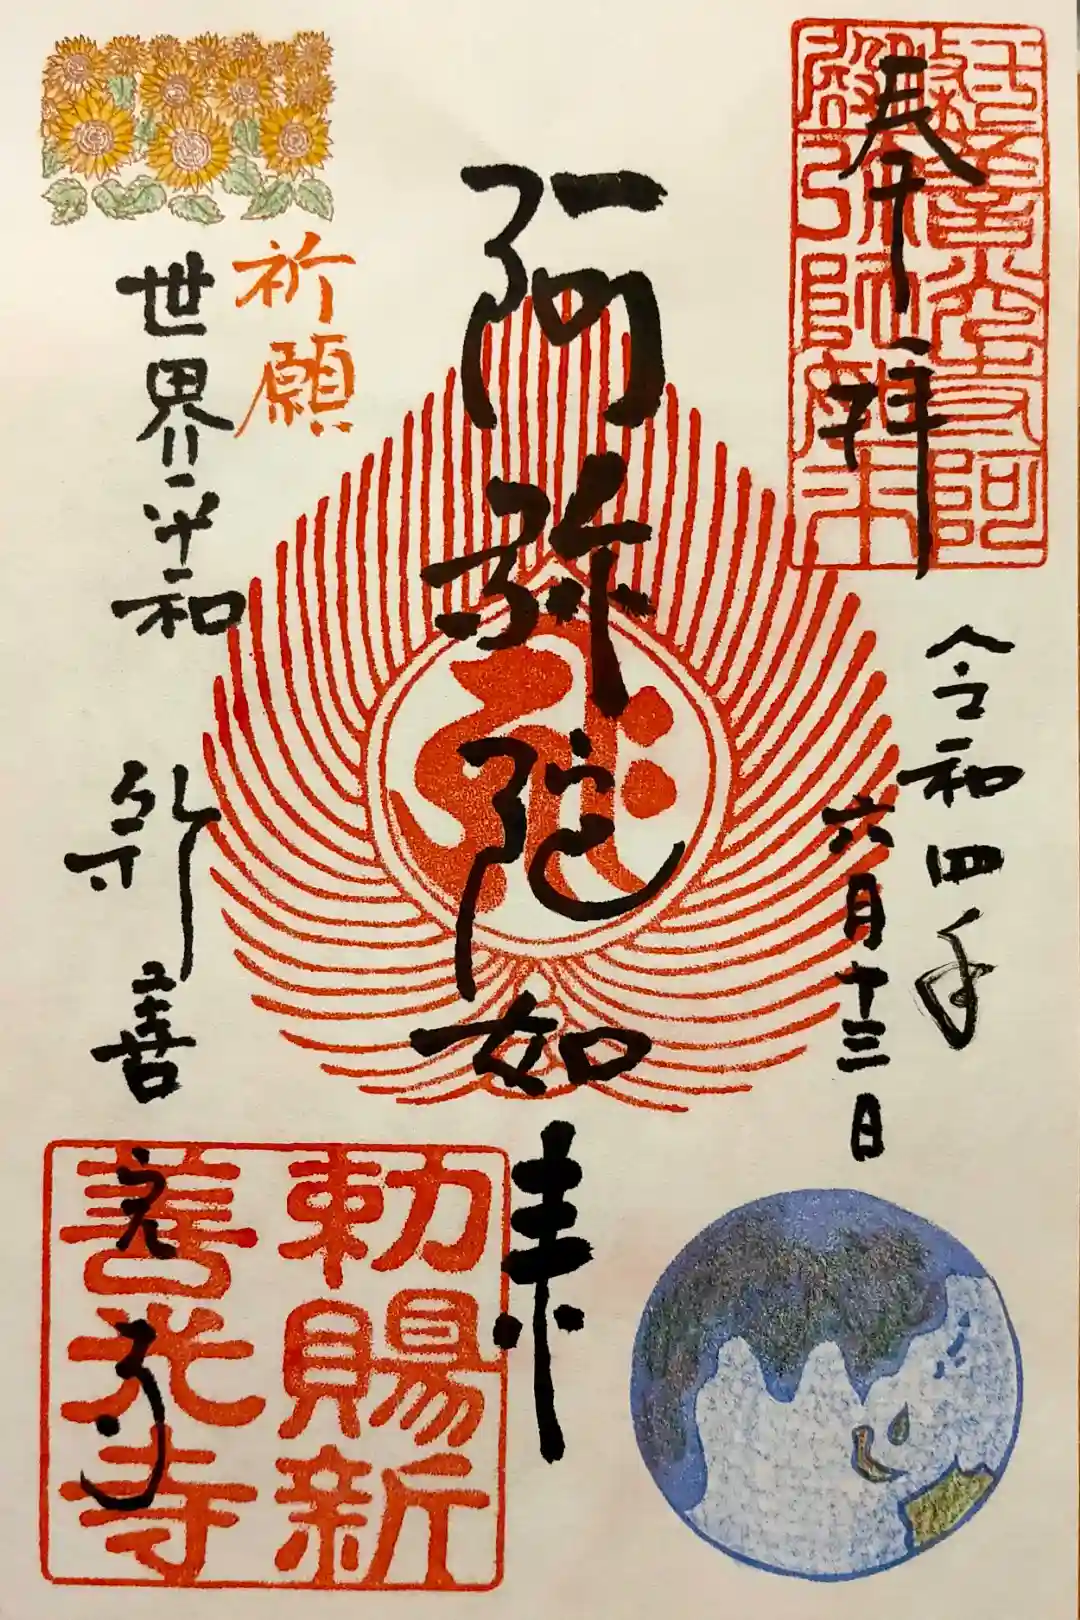 奉拝
令和四年
六月十三日
阿弥陀如来
祈願
世界平和
新善光寺
勅賜新
善光寺